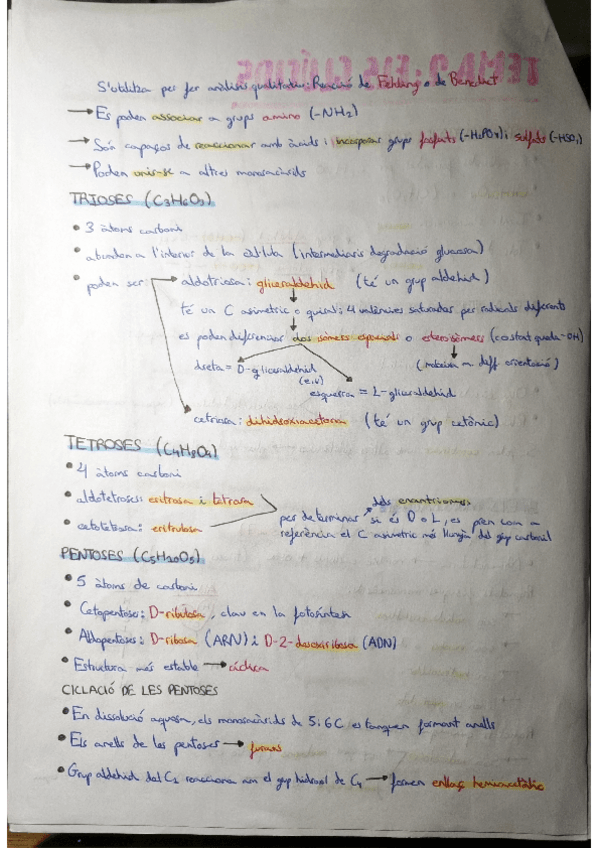 S'utilitza per fer anàlisis qualitatiu: Reacció de Fehling o de Benedict
→ Es poden associar a grups amino (-NH2)
→ Són capaços de reaccionar amb àcids i incorporar grups fosfats (-H2PO4) i sulfats (-HSO3)
→ Poden unir-se a altres monosacàrids
TRIOSES (C3H6O3)
• 3 àtoms carboni
• abunden a l'interior de la cèl·lula (intermediaris degradació glucosa)
• poden ser → aldotriosa: gliceraldehid (té un grup aldehid)
té un C asimètric o quiral: 4 valències saturades per radicals diferents
es poden diferenciar dos isòmers espacials o esteroisòmers (costat queda -OH)
dreta = D-gliceraldehid (mateixa m. diff orientació)
esquerra = L-gliceraldehid
cetriosa: dihidroxiacetona (té un grup cetònic)
TETROSES (C4H8O4)
• 4 àtoms carboni
• aldotetroses: eritrosa i tetrosa
dels enantiomers
• cetotetrosa: eritrulosa
per determinar si és D o L, es pren com a
referència el C asimètric més llunyà del grup carbonil
PENTOSES (C5H10O5)
• 5 àtoms de carboni
• Cetopentoses: D-ribulosa, clau en la fotosíntesi
• Aldopentoses: D-ribosa (ARN) i D-2-desoxiribosa (ADN)
• Estructura més estable → cíclica
CICLACIÓ DE LES PENTOSES
• En dissolució aquosa, els monosacàrids de 5 i 6C es tanquen formant anells
• Els anells de les pentoses → furans
• Grup aldehid del C1 reacciona am el grup hidroxil de C4 → formen enllaç hemiacetàlic